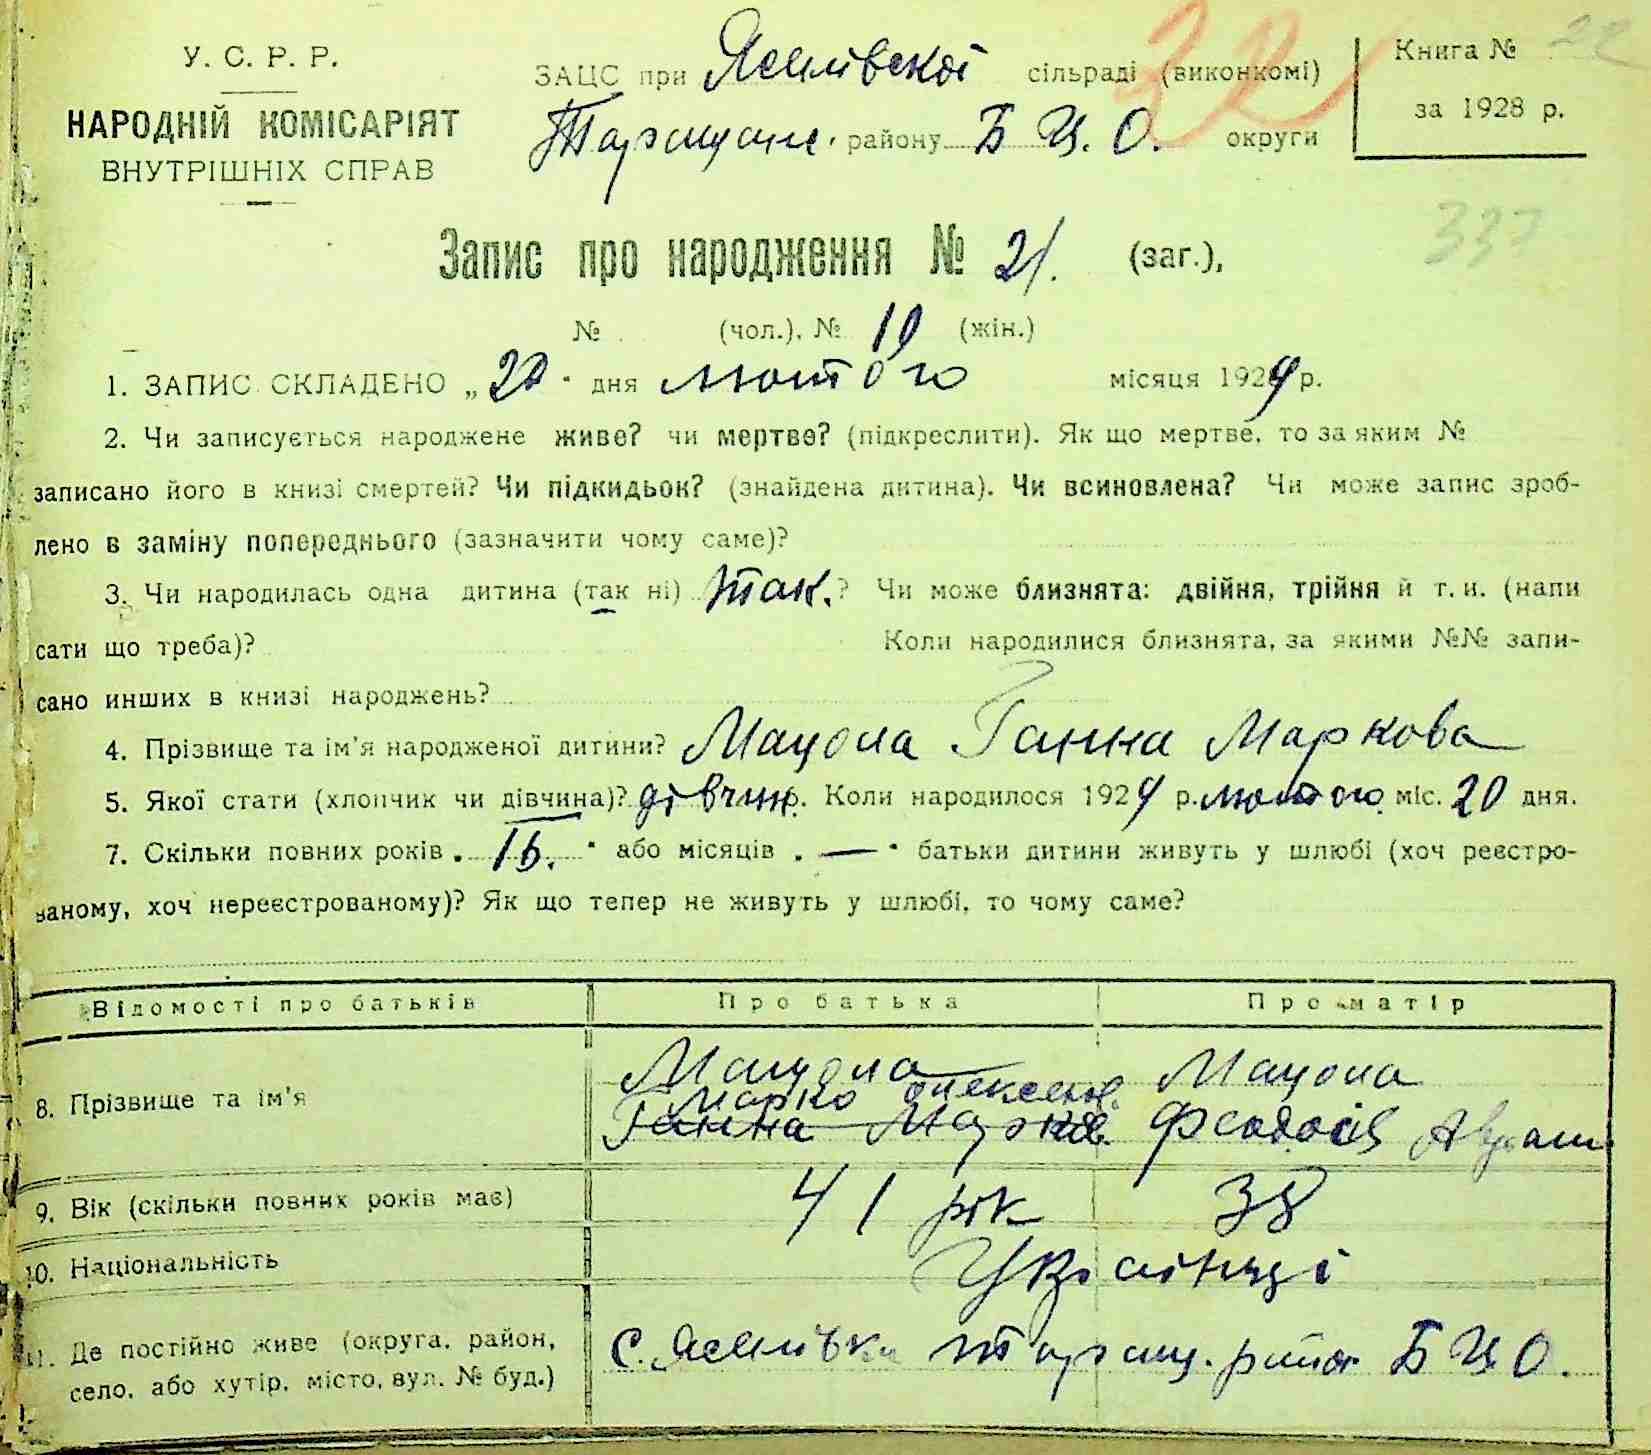 У. С. Р. Р.
НАРОДНІЙ КОМІСАРІЯТ
ВНУТРІШНІХ СПРАВ
ЗАЦС при Лсилівскої сільраді (виконкомі)
Таращан. району Б Ц. О. округи
32
Книга № 22
за 1928 р.
337
Запис про народження № 21. (заг.),
№ (чол.), № 10 (жін.)
1. ЗАПИС СКЛАДЕНО „20" дня лютого місяця 1929 р.
2. Чи записується народжене живе? чи мертве? (підкреслити). Як що мертве, то за яким №
записано його в книзі смертей? Чи підкидьок? (знайдена дитина). Чи всиновлена? Чи може запис зроб-
лено в заміну попереднього (зазначити чому саме)?
3. Чи народилась одна дитина (так ні) так.? Чи може близнята: двійня, трійня й т. и. (напи
сати що треба)? Коли народилися близнята, за якими №№ запи-
сано инших в книзі народжень?
4. Прізвище та ім'я народженої дитини? Мацола Ганна Маркова
5. Якої стати (хлопчик чи дівчина)? дівчин. Коли народилося 1929 р. лютого міс. 20 дня.
7. Скільки повних років „16." або місяців „—" батьки дитини живуть у шлюбі (хоч реєстро-
ваному, хоч нереєстрованому)? Як що тепер не живуть у шлюбі, то чому саме?
Відомості про батьків Про батька Про матір
8. Прізвище та ім'я Мацола Мацола
Марко Олексеев.
Ганна Марков. Феодосія Аврам
9. Вік (скільки повних років має) 41 рік 38
10. Національність Українці
11. Де постійно живе (округа, район,
село, або хутір, місто, вул. № буд.)
с. Таращ. район Б Ц О.